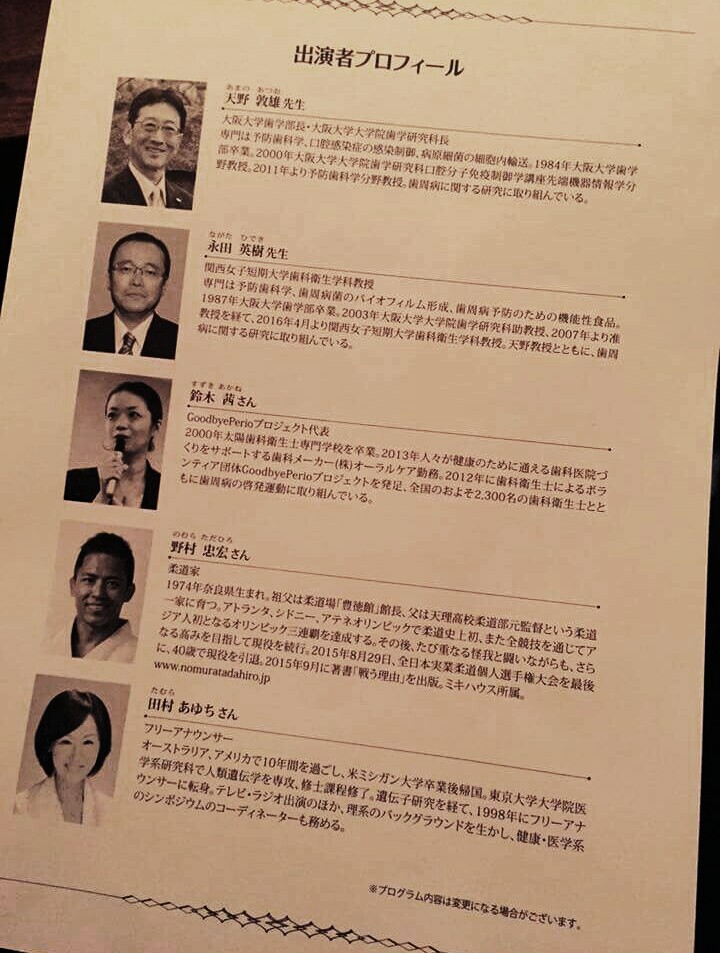 出演者プロフィール
あまの あつお
天野 敦雄先生
大阪大学歯学部長・大阪大学大学院歯学研究科長
専門は予防歯科学、口腔感染症の感染制御、病原細菌の細胞内輸送。1984年大阪大学歯学
部卒業。2000年大阪大学大学院歯学研究科口腔分子免疫制御学講座先端機器情報学分
野教授。2011年より予防歯科学分野教授。歯周病に関する研究に取り組んでいる。
ながた ひでき
永田 英樹先生
関西女子短期大学歯科衛生学科教授
専門は予防歯科学、歯周病菌のバイオフィルム形成、歯周病予防のための機能性食品。
1987年大阪大学歯学部卒業。2003年大阪大学大学院歯学研究科助教授、2007年より准
教授を経て、2016年4月より関西女子短期大学歯科衛生学科教授。天野教授とともに、歯周
病に関する研究に取り組んでいる。
すずき あかね
鈴木 茜さん
GoodbyePerioプロジェクト代表
2000年太陽歯科衛生士専門学校を卒業。2013年人々が健康のために通える歯科医院づ
くりをサポートする歯科メーカー(株)オーラルケア勤務。2012年に歯科衛生士によるボラ
ンティア団体GoodbyePerioプロジェクトを発足、全国のおよそ2,300名の歯科衛生士とと
もに歯周病の啓発運動に取り組んでいる。
のむら ただひろ
野村 忠宏さん
柔道家
1974年奈良県生まれ。祖父は柔道場「豊徳館」館長、父は天理高校柔道部元監督という柔道
一家に育つ。アトランタ、シドニー、アテネオリンピックで柔道史上初、また全競技を通じてア
ジア人初となるオリンピック三連覇を達成する。その後、たび重なる怪我と闘いながらも、さら
なる高みを目指して現役を続行。2015年8月29日、全日本実業柔道個人選手権大会を最後
に、40歳で現役を引退。2015年9月に著書「戦う理由」を出版。ミキハウス所属。
www.nomuratadahiro.jp
たむら
田村 あゆちさん
フリーアナウンサー
オーストラリア、アメリカで10年間を過ごし、米ミシガン大学卒業後帰国。東京大学大学院医
学系研究科で人類遺伝学を専攻、修士課程修了。遺伝子研究を経て、1998年にフリーアナ
ウンサーに転身。テレビ・ラジオ出演のほか、理系のバックグラウンドを生かし、健康・医学系
のシンポジウムのコーディネーターも務める。
※プログラム内容は変更になる場合がございます。